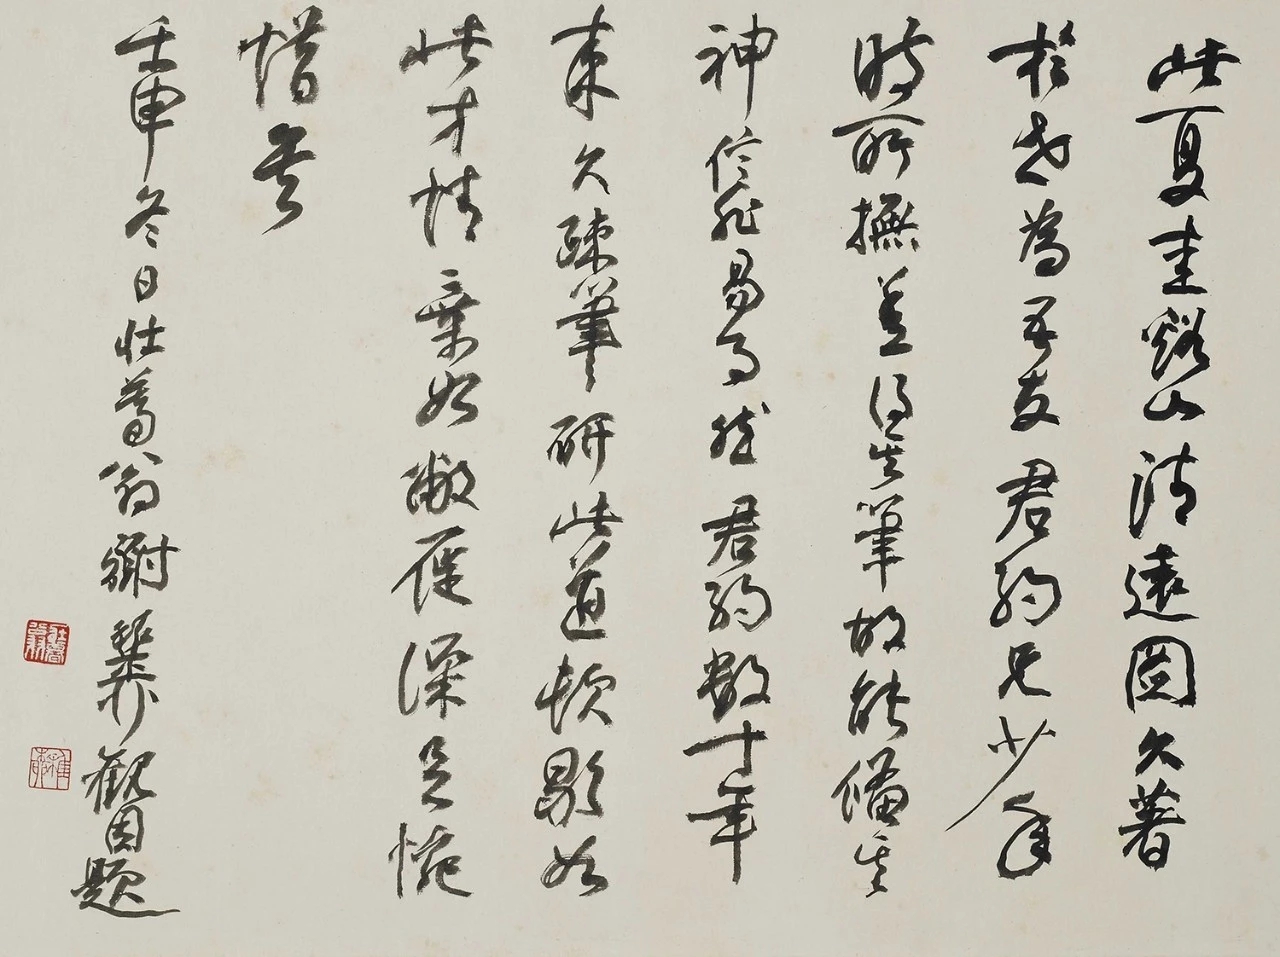 此夏圭谿山清遠圖久著
於世為吾友君約兄少年
時所撫並得其筆故能備其
神信非易事然君約數十年
來久疎筆研此道頓歇如
此才情棄如敝屣深足惋
惜矣
壬申冬日壯蕃翁謝稚觀因題